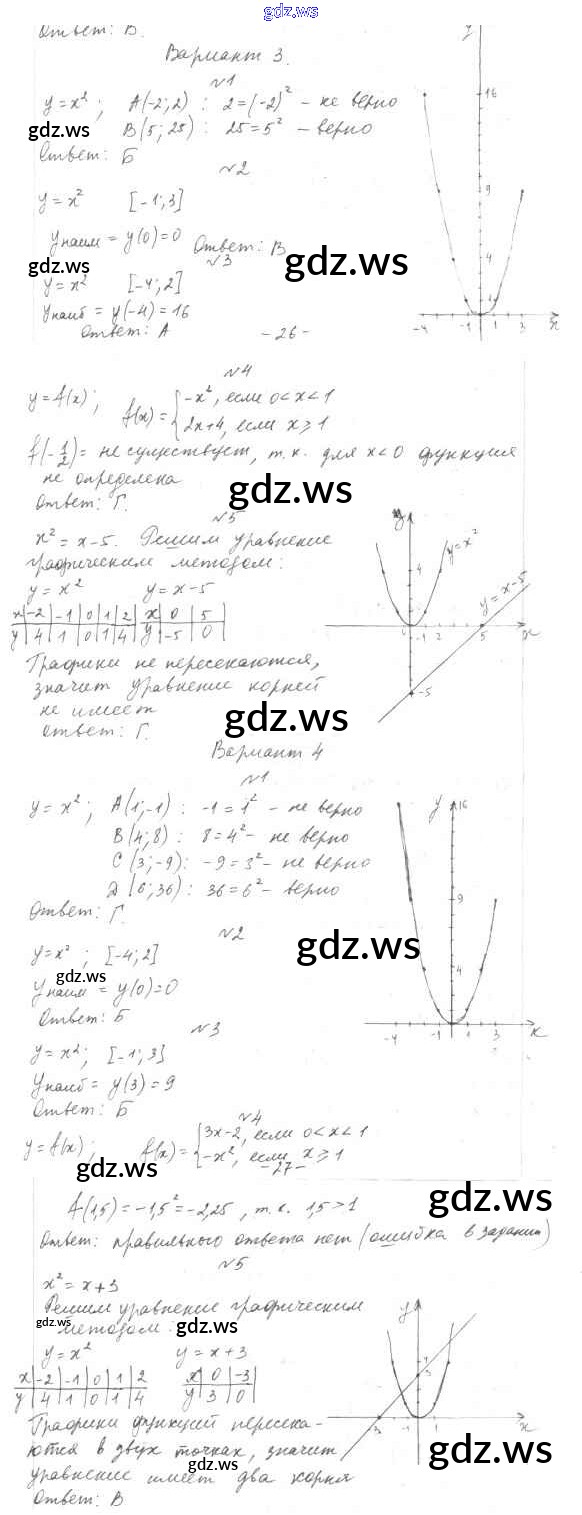 gdz.ws
Ответ: В.
Вариант 3.
№1
y = x²; A(-2; 2) : 2 = (-2)² - не верно
B(5; 25) : 25 = 5² - верно
gdz.ws
Ответ: Б
№2
y = x² [-1; 3]
yнаим = y(0) = 0 Ответ: В
gdz.ws
№3
gdz.ws
y = x² [-4; 2]
yнаиб = y(-4) = 16
Ответ: А
-26-
y
16
9
4
1
-4 -1 1 3 x
№4
y = f(x); f(x) = { -x², если 0 < x < 1
2x+4, если x ⩾ 1
f(-1/2) = не существует, т.к. для x < 0 функция
не определена
gdz.ws
Ответ: Г.
№5
x² = x - 5. Решим уравнение
графическим методом:
y = x² y = x - 5
x -2 -1 0 1 2 x 0 5
y 4 1 0 1 4 y -5 0
Графики не пересекаются,
значит уравнение корней
не имеет
gdz.ws
Ответ: Г.
y
y = x²
4
y = x - 5
0 1 2 5 x
-5
Вариант 4
№1
y = x²; A(1; -1) : -1 = 1² - не верно
B(4; 8) : 8 = 4² - не верно
C(3; -9) : -9 = 3² - не верно
D(6; 36) : 36 = 6² - верно
Ответ: Г.
№2
gdz.ws
y = x²; [-4; 2]
gdz.ws
yнаим = y(0) = 0
Ответ: Б
№3
y = x²; [-1; 3]
yнаиб = y(3) = 9
Ответ: Б
y
16
9
4
-4 -1 1 3 x
№4
y = f(x); f(x) = { 3x-2, если 0 < x < 1
-x², если x ⩾ 1
gdz.ws
-27-
gdz.ws
f(1,5) = -1,5² = -2,25, т.к. 1,5 > 1
Ответ: правильного ответа нет (ошибка в задании)
№5
x² = x + 3
Решим уравнение графическим
gdz.ws
методом:
gdz.ws
y = x² y = x + 3
x -2 -1 0 1 2 x 0 -3
y 4 1 0 1 4 y 3 0
Графики функций пересека-
ются в двух точках, значит
gdz.ws
уравнение имеет два корня
Ответ: В
y
4
3
-3 -1 1 x
gdz.ws